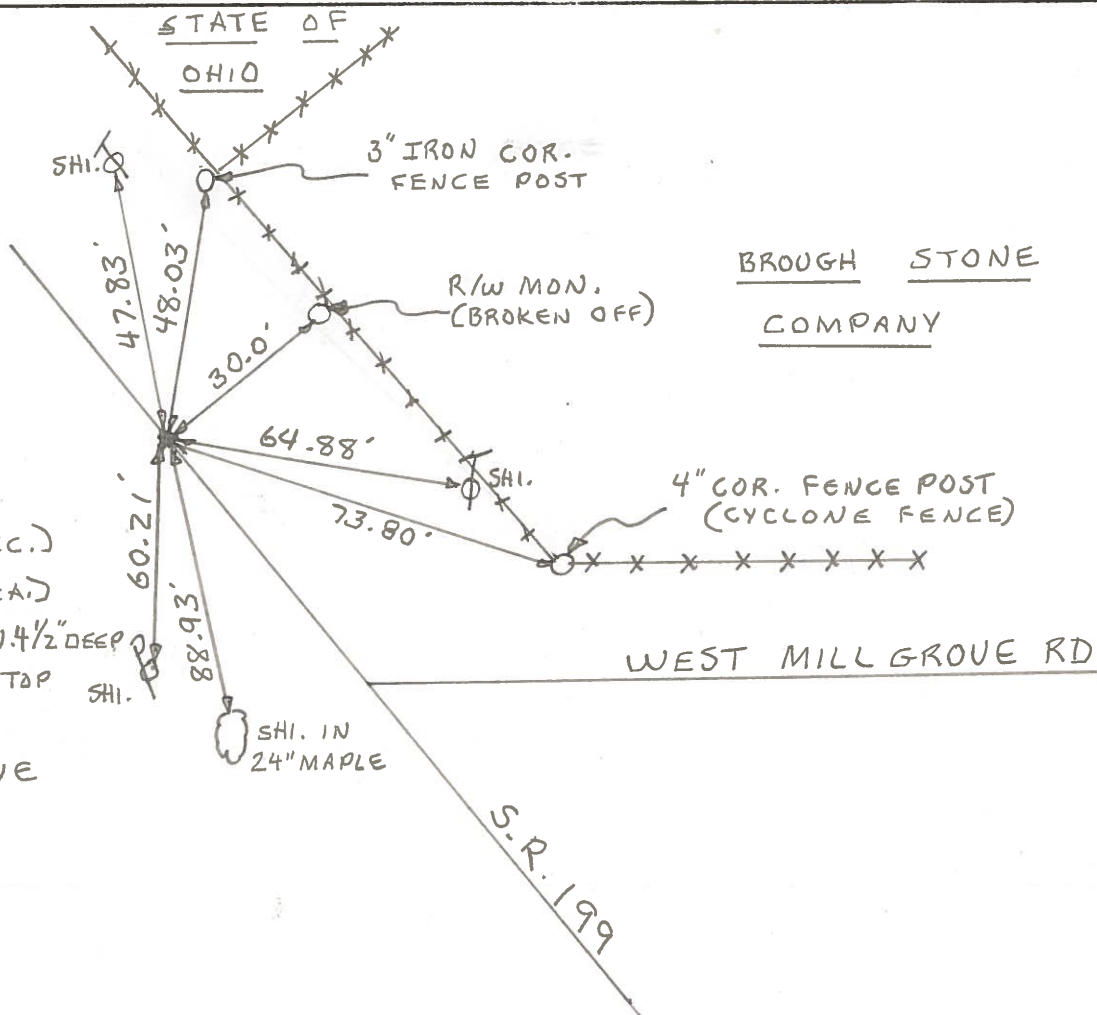 STATE OF
OHIO
SHI.
3" IRON COR.
FENCE POST
47.83'
48.03'
R/W MON.
(BROKEN OFF)
BROUGH STONE
COMPANY
30.0'
64.88'
SHI.
73.80'
4" COR. FENCE POST
(CYCLONE FENCE)
60.21'
88.93'
C.)
4 1/2" DEEP
TOP
SHI.
SHI. IN
24" MAPLE
WEST MILLGROVE RD
S.R. 199